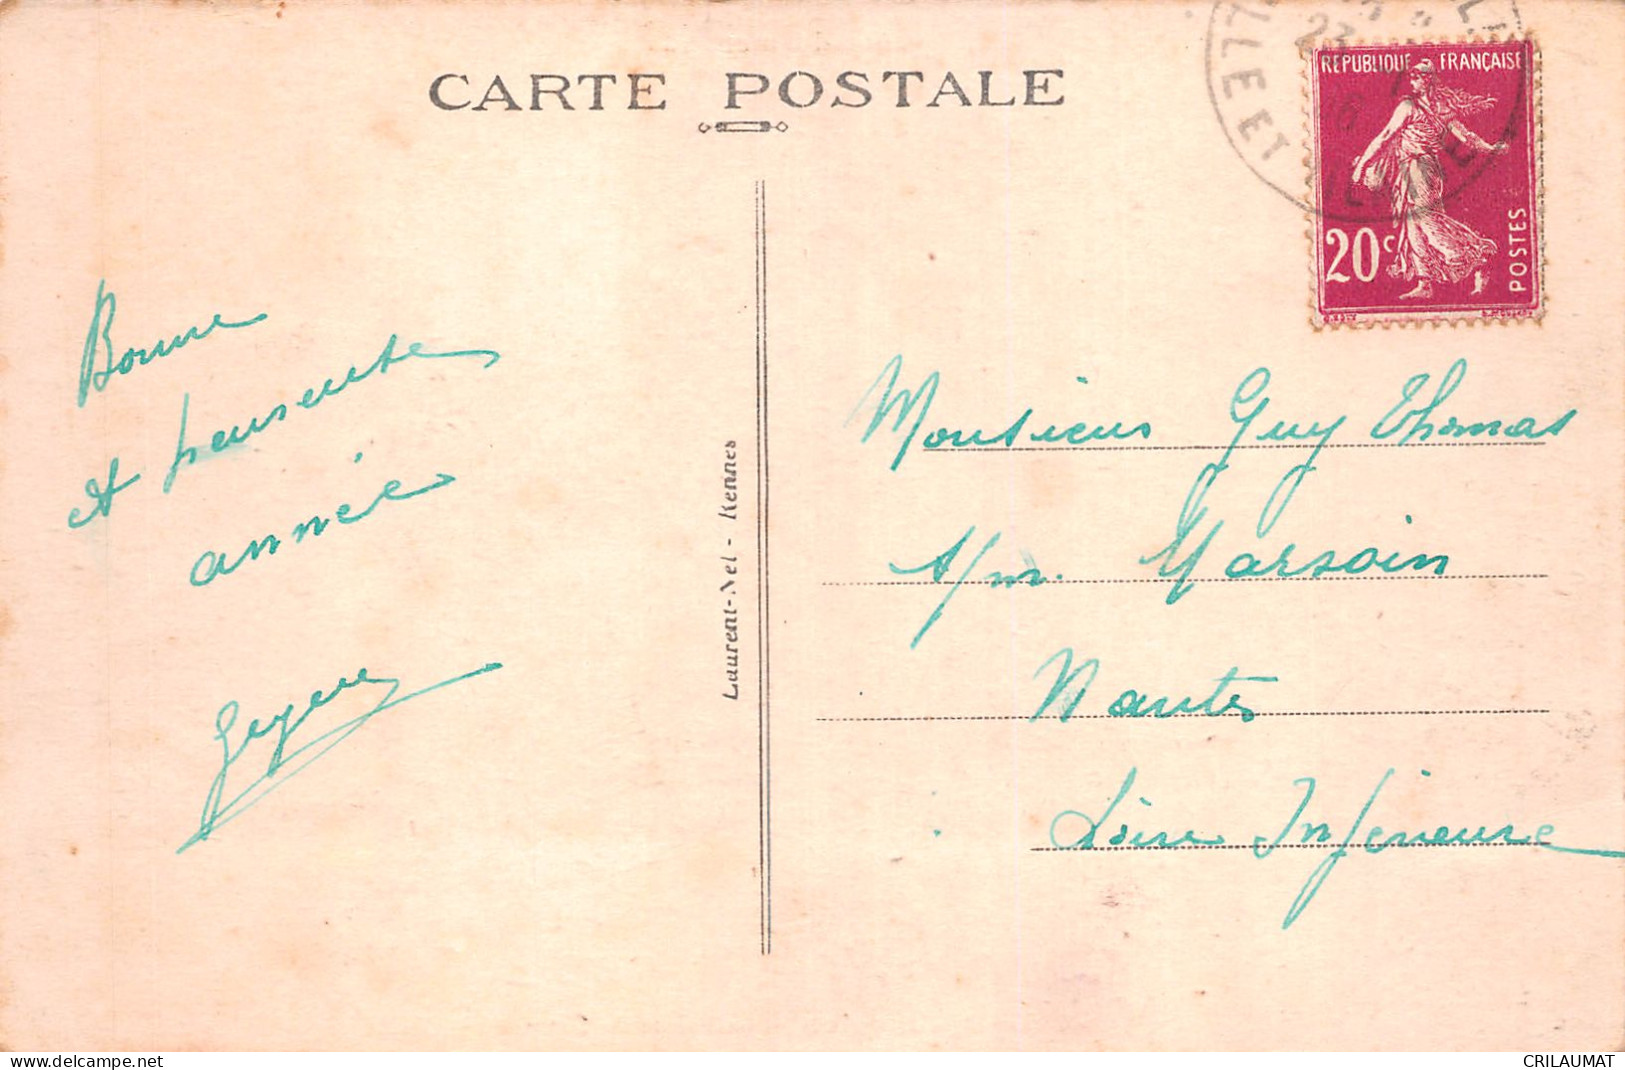 CARTE POSTALE
REPUBLIQUE FRANÇAISE
20c
POSTES
23
ILLE ET VILAINE
Bonne
et
année
Laurent-Nel - Rennes
Monsieur Guy Thomas
Nantes
Loire Inférieure
CRILAUMAT
www.delcampe.net